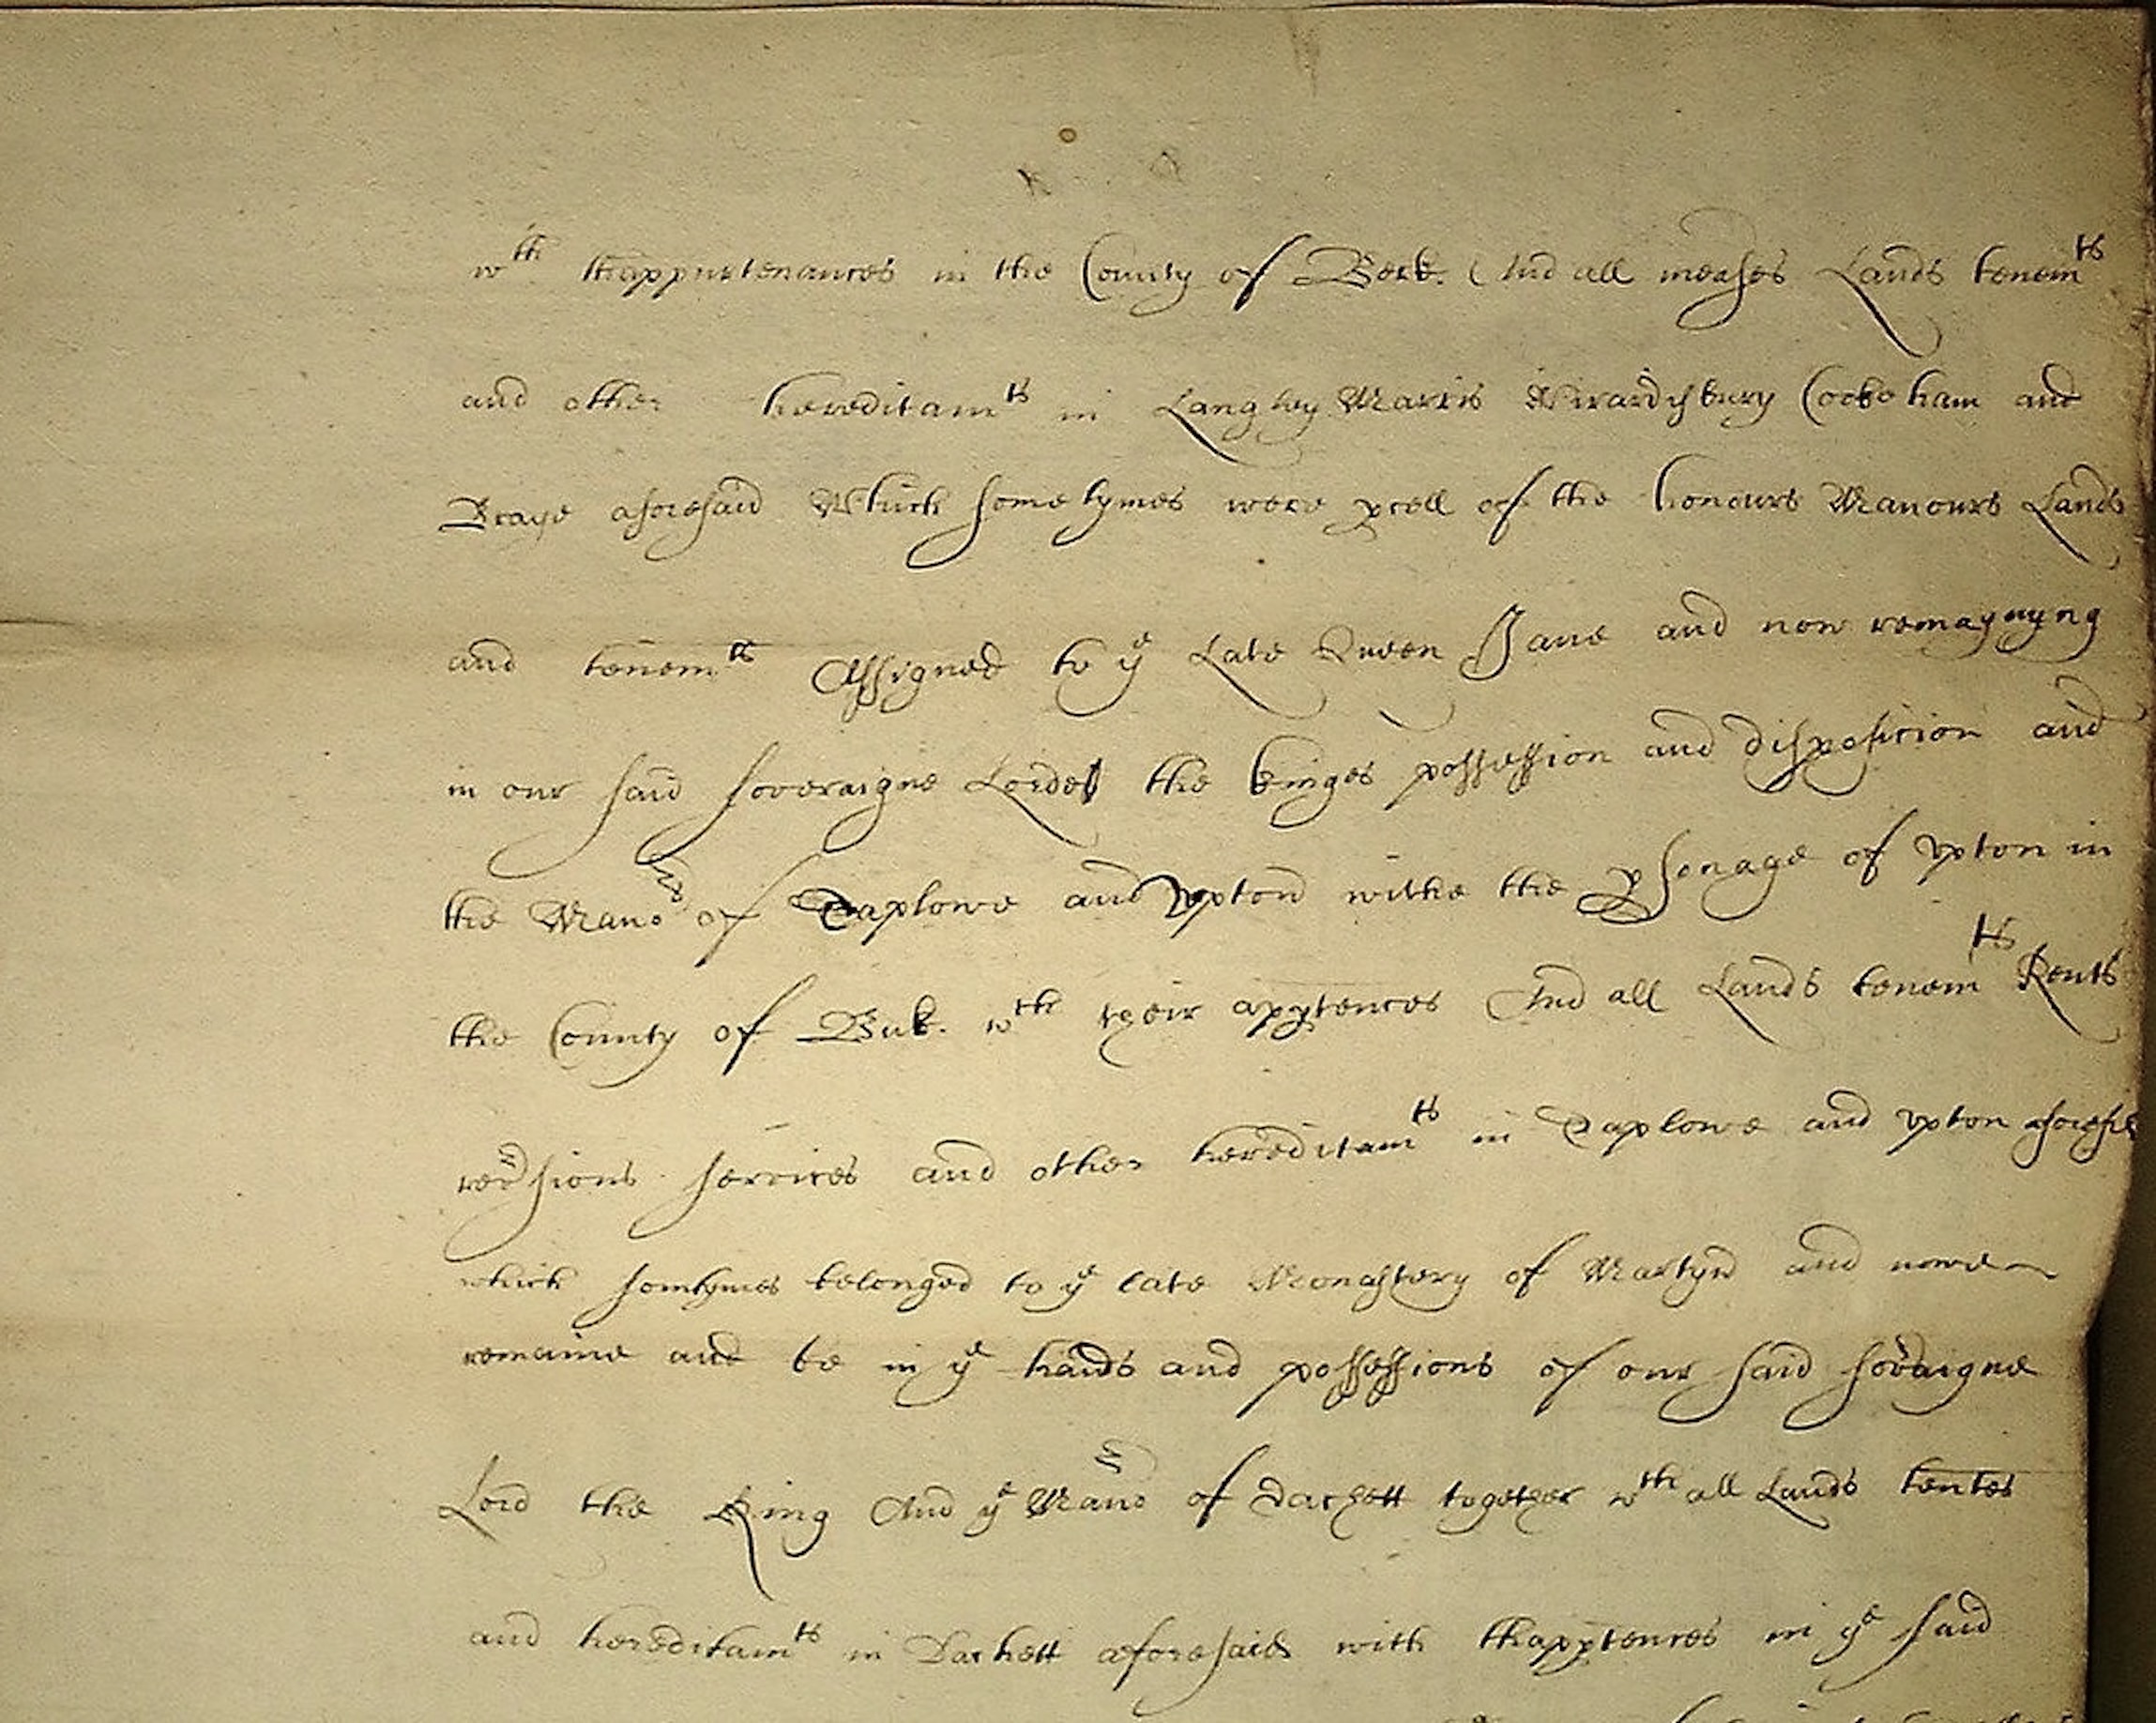 wth thappurtenances in the County of Berk. And all meases Lands tenemts
and other hereditamts in Langley Marris Wirardisbury Cookeham and
Braye aforesaid Which sometymes were pcell of the honours Manours Lands
and tenemts Assigned to ye Late Queen Jane and now remaynyng
in our said soveraigne Lordes the kinges possession and disposicion and
the Manor of Taplowe and Upton withe the psonage of Upton in
the County of Buk. wth their apptences And all Lands tenemts Rents
revsions services and other hereditamts in Taplowe and Upton aforesd
which somtymes belonged to ye late Monastery of Martyn and nowe
remaine and be in ye hands and possessions of our said sovaigne
Lord the King And ye Manor of Dachett together wth all Lands tentes
and hereditamts in Dachett aforesaid with thapptences in ye said